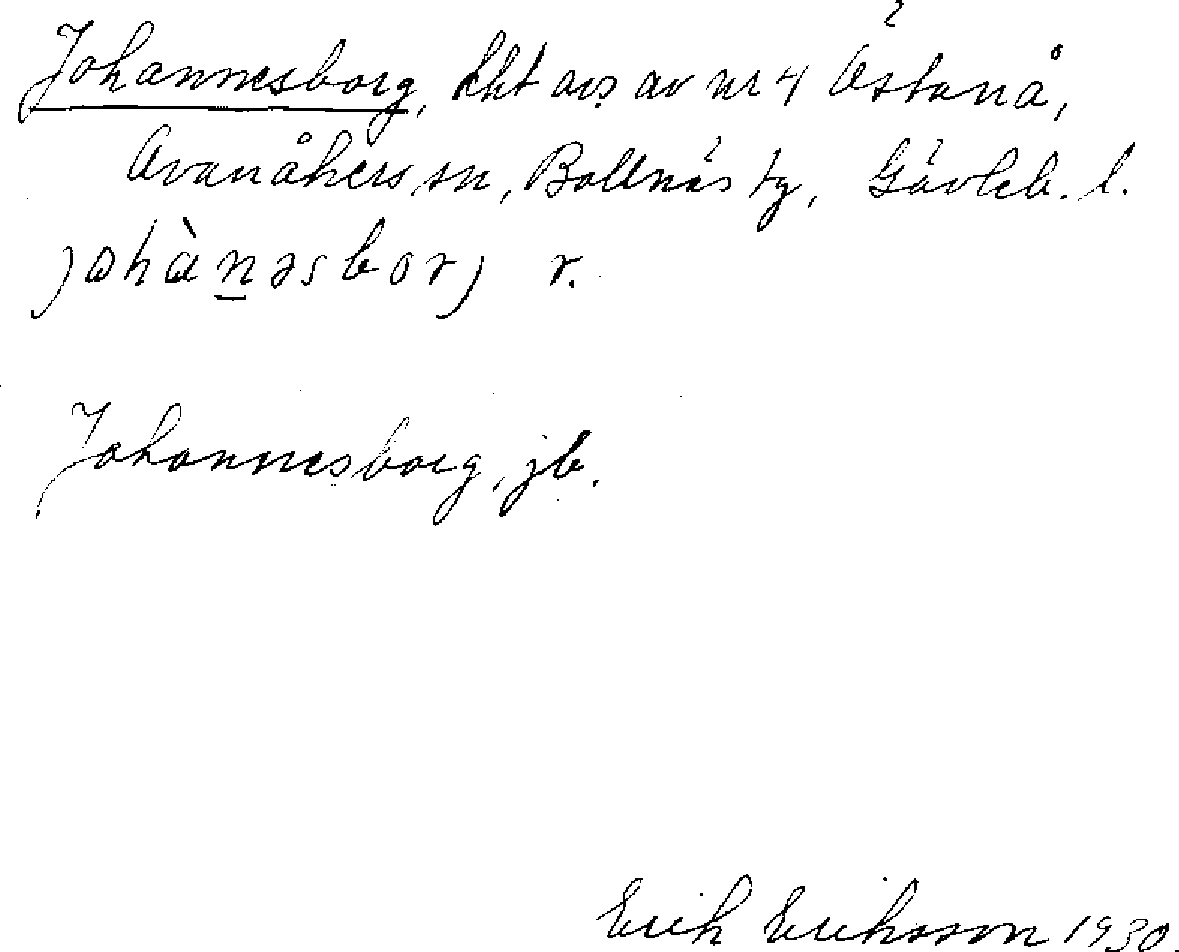 Johannesborg, lht avs av nr 4 Östanå,
Arvanåkers sn, Bollnäs tg, Gävleb. l.
johànəsborj r.
Johannesborg, jb.
Erik Eriksson 1930.